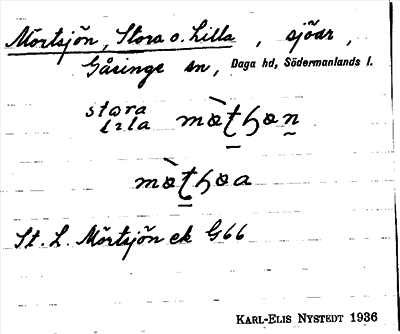 Mörtsjön, Stora o. Lilla, sjöar,
Gåsinge sn, Daga hd, Södermanlands l.
stora
lıla
St. L. Mörtsjön ek G66
KARL-ELIS NYSTEDT 1936